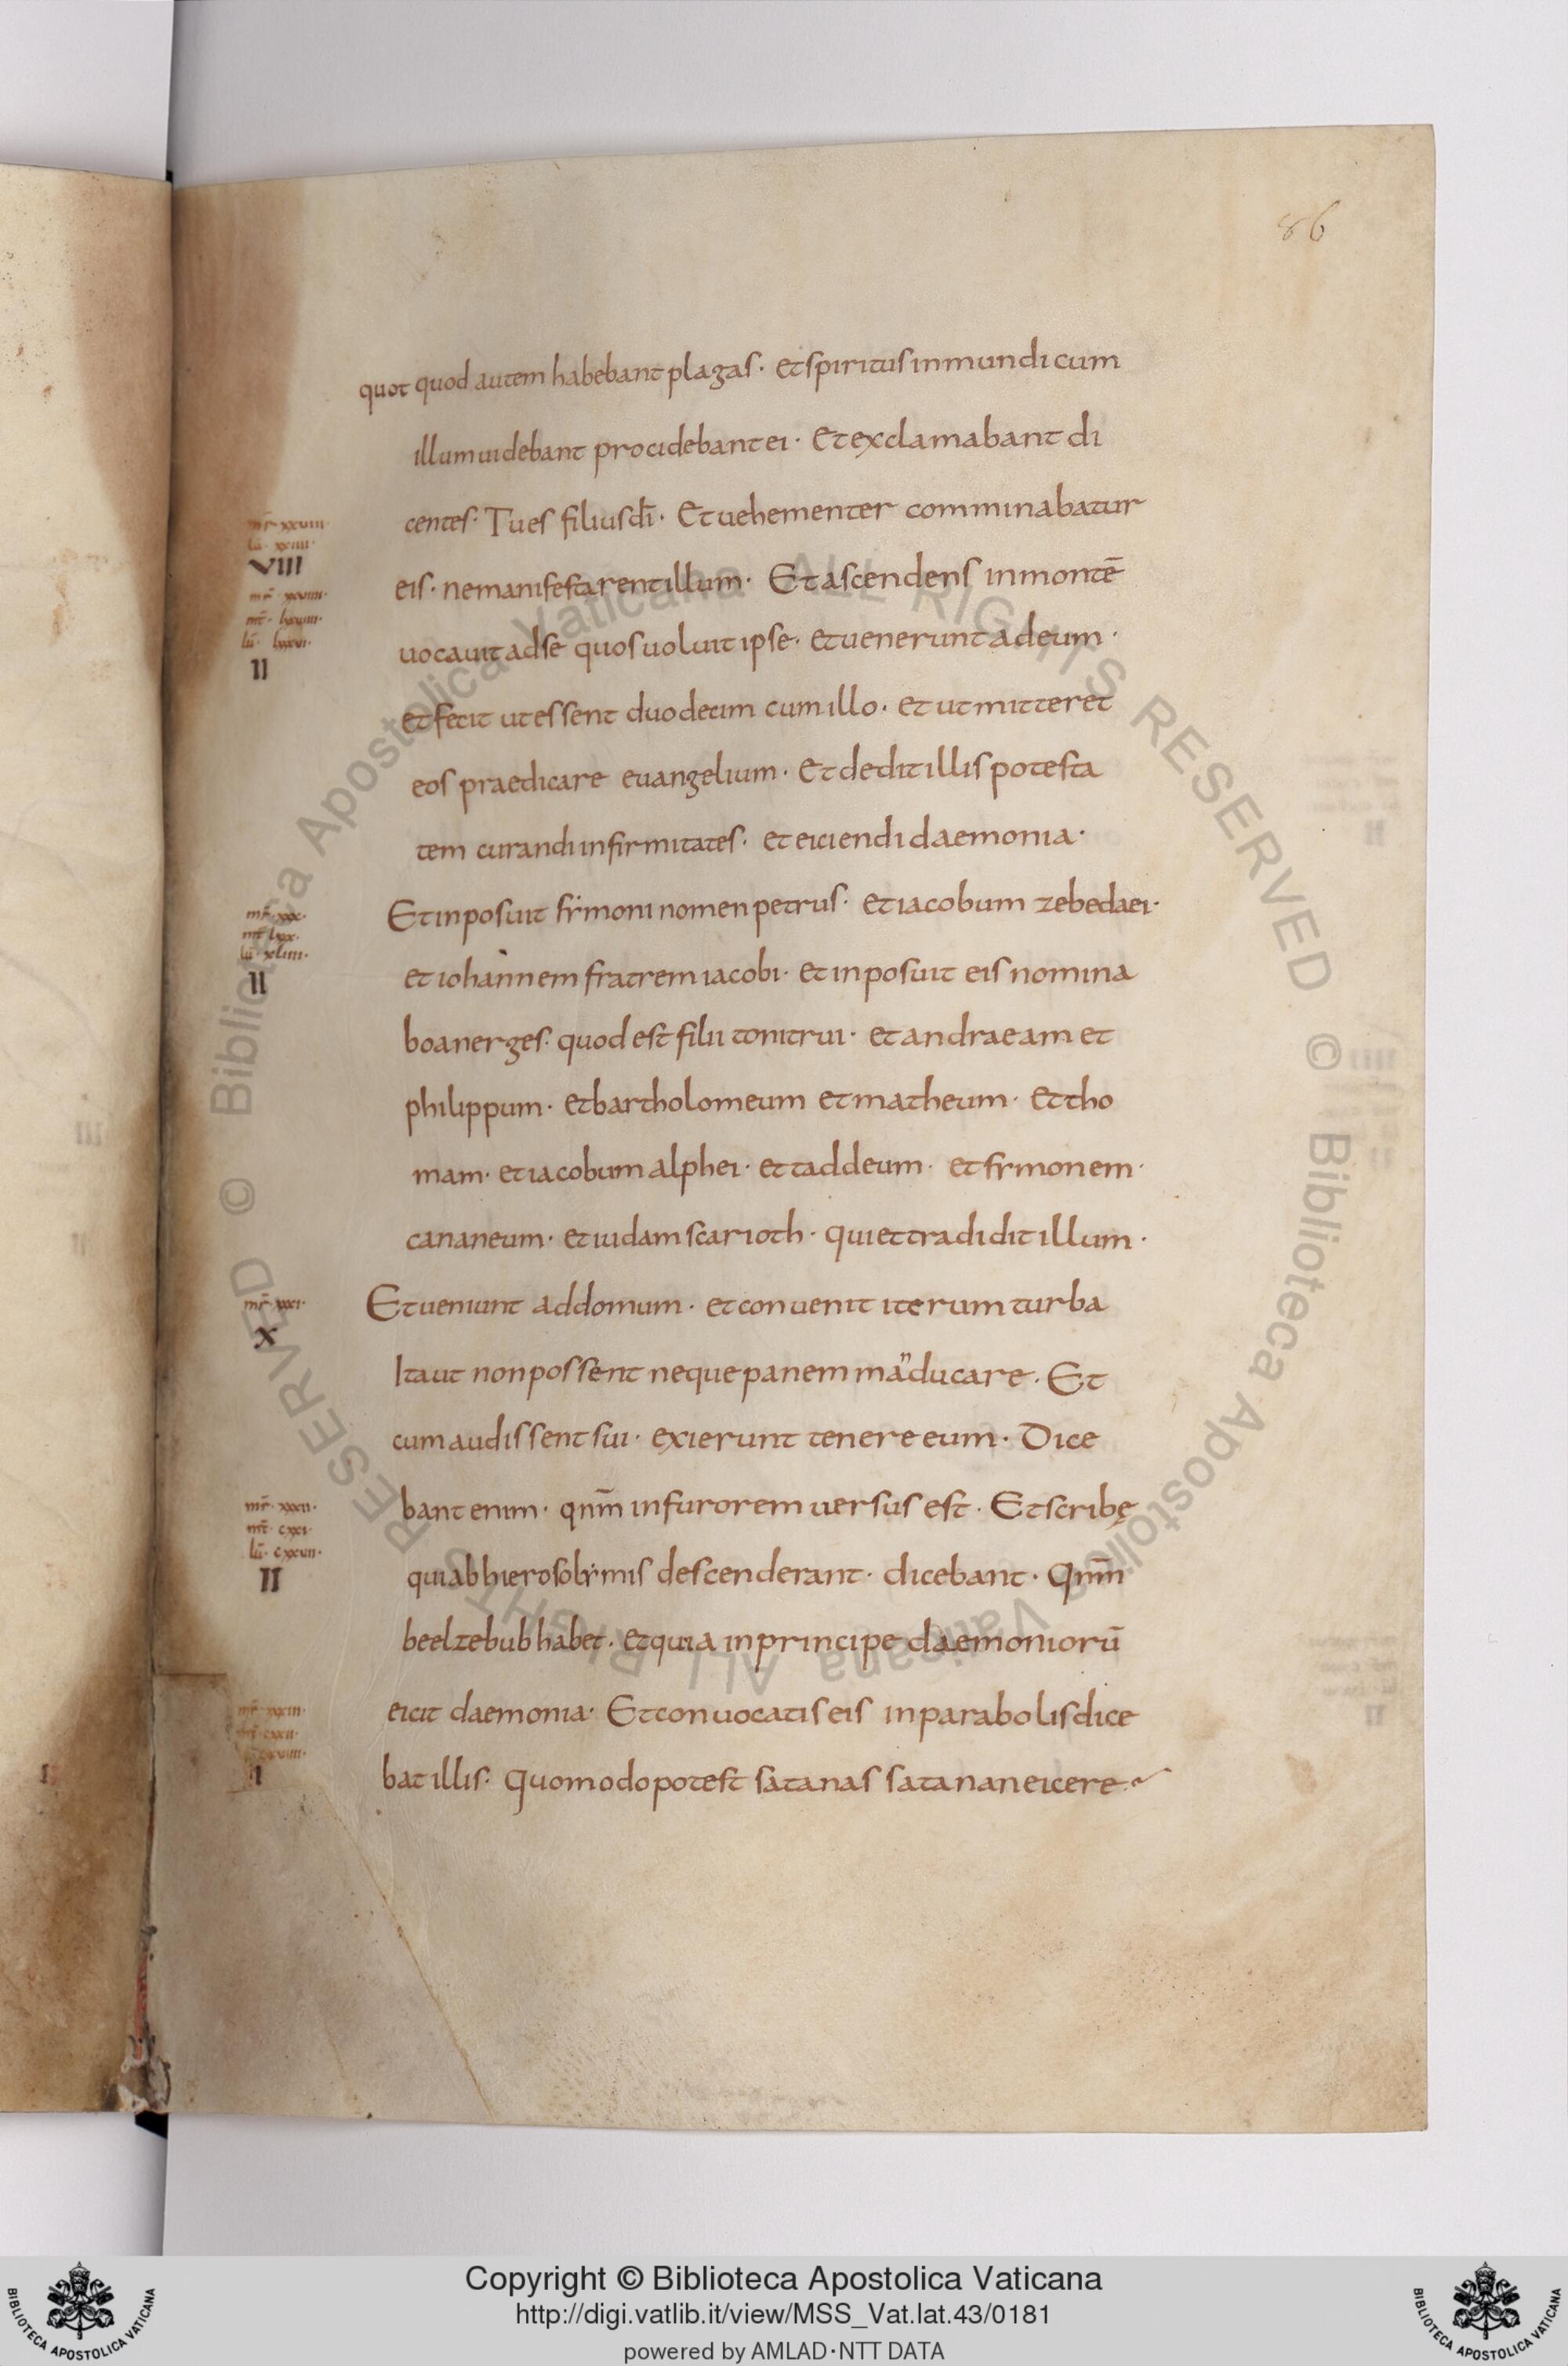 86
quot quod autem habebant plagas · et spiritus inmundi cum
illum uidebant procidebant ei · Et exclamabant di
centes · Tu es filius dī · Et uehementer comminabatur
eis · ne manifestarent illum · Et ascendens in montē
uocauit ad se quos uoluit ipse · et uenerunt ad eum ·
et fecit ut essent duodecim cum illo · et ut mitteret
eos praedicare euangelium · Et dedit illis potesta
tem curandi infirmitates · et eiciendi daemonia ·
Et inposuit symoni nomen petrus · et iacobum zebedaei ·
et iohannem fratrem iacobi · et inposuit eis nomina
boanerges · quod est filii tonitrui · et andraeam et
philippum · et bartholomeum et matheum · et tho
mam · et iacobum alphei · et taddeum · et symonem ·
cananeum · et iudam scarioth · qui et tradidit illum ·
Et ueniunt ad domum · et conuenit iterum turba
Ita ut non possent neque panem maⁿducare · Et
cum audissent sui · exierunt tenere eum · Dice
bant enim · qnm̄ in furorem uersus est · Et scribę
qui ab hierosolymis descenderant · dicebant · Qnm̄
beelzebub habet · et quia in principe daemoniorū
eicit daemonia · Et conuocatis eis in parabolis dice
bat illis · Quomodo potest satanas satanan eicere
VIII
II
mr̄ · xxx ·
mt̄ lxx ·
II
mr̄ · xxxi ·
X
mr̄ · xxxii ·
mt̄ · cxxi ·
lū · cxxvii ·
II
Copyright © Biblioteca Apostolica Vaticana
http://digi.vatlib.it/view/MSS_Vat.lat.43/0181
powered by AMLAD·NTT DATA
BIBLIOTECA APOSTOLICA VATICANA
BIBLIOTECA APOSTOLICA VATICANA
© Biblioteca Apostolica Vaticana ALL RIGHTS RESERVED
© Biblioteca Apostolica Vaticana ALL RIGHTS RESERVED